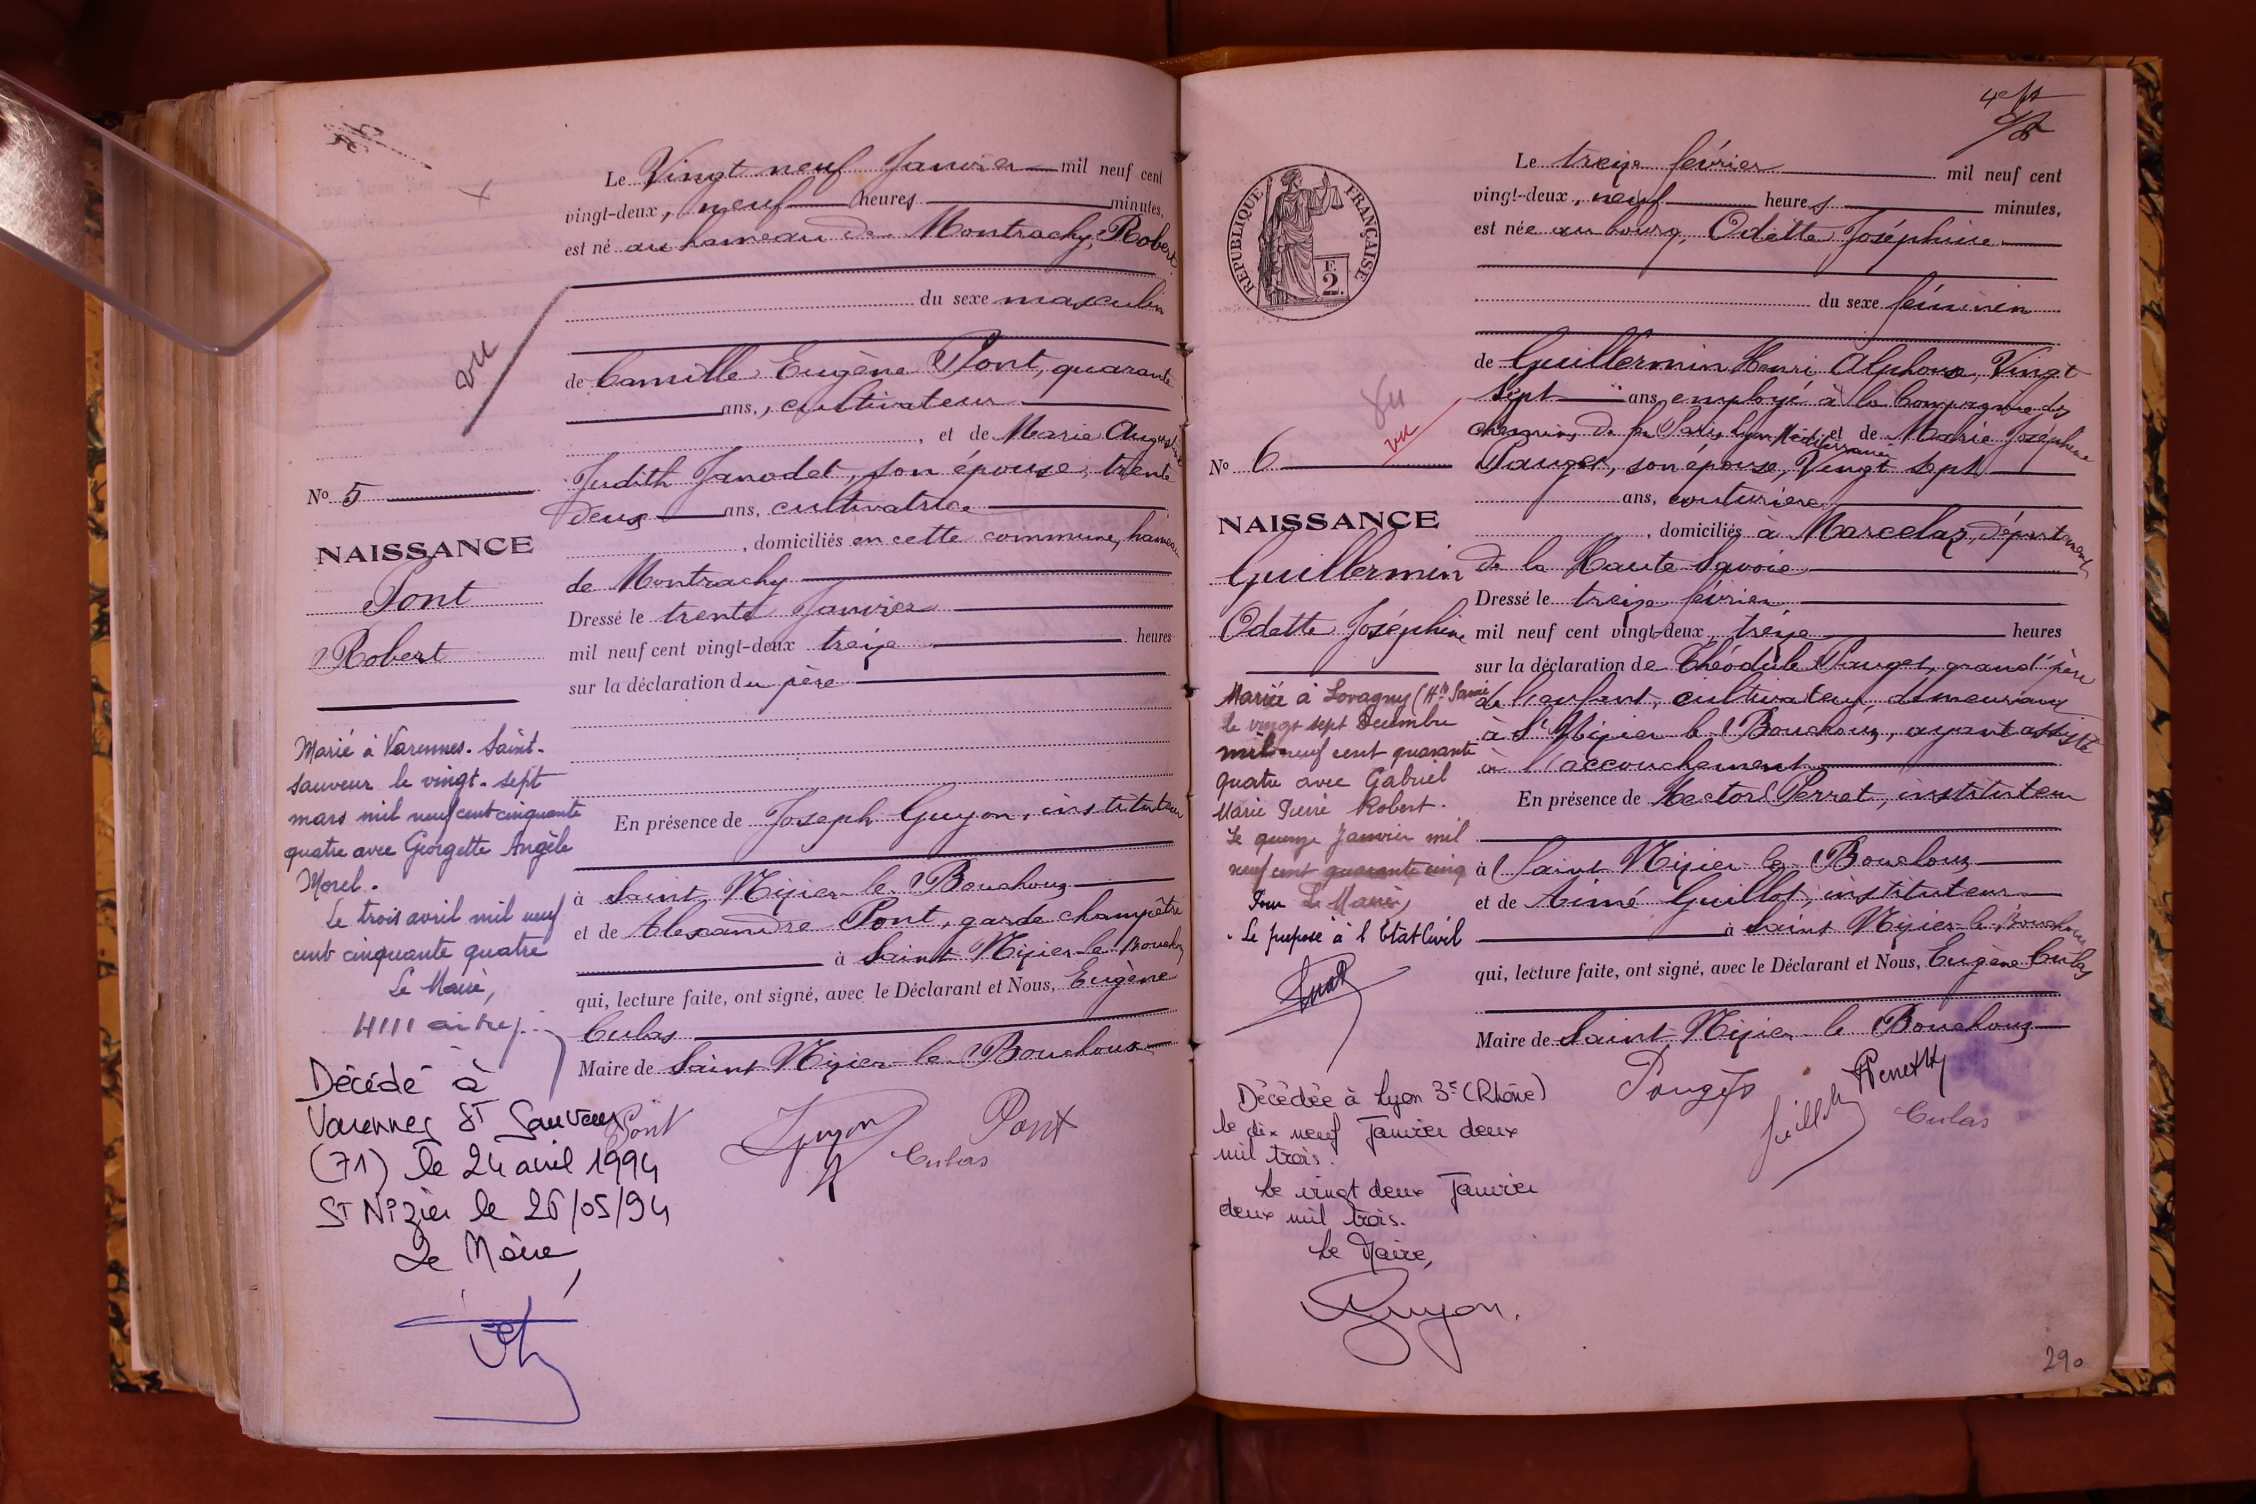 Le Vingt neuf Janvier mil neuf cent
vingt-deux, neuf heures minutes,
est né au hameau de Montrachy, Robert
du sexe masculin
vu
de Camille Eugène Pont, quarante
ans, cultivateur
, et de Marie Augustine
Judith Janodet, son épouse, trente
deux ans, cultivatrice
, domiciliés en cette commune, hameau
de Montrachy
Dressé le trente Janvier
mil neuf cent vingt-deux treize heures
sur la déclaration du père
En présence de Joseph Guyon, instituteur
à Saint Nizier le Bouchoux
et de Alexandre Pont, garde champêtre
à Saint Nizier le Bouchoux
qui, lecture faite, ont signé, avec le Déclarant et Nous, Eugène
Cubas
Maire de Saint Nizier le Bouchoux
Pont Guyon Cubas Pont
No 5
NAISSANCE
Pont
Robert
Marié à Varennes-Saint-
Sauveur le vingt-sept
mars mil neuf cent cinquante
quatre avec Georgette Angèle
Morel.
Le trois avril mil neuf
cent cinquante quatre
Le Maire,
Décédé à
Varennes St Sauveur
(71) le 24 avril 1994
St Nizier le 26/05/94
Le Maire
4e
RÉPUBLIQUE FRANÇAISE
F.
2.
Le treize février mil neuf cent
vingt-deux, neuf heures minutes,
est née au bourg, Odette Joséphine
du sexe féminin
de Guillermin Henri Alphonse, Vingt
sept ans employé à la Compagnie des
chemins de fer Paris Lyon Méditerranée et de Marie Joséphine
Pauget, son épouse, Vingt sept
ans, couturière
, domiciliés à Marcelaz, département
de la Haute Savoie
Dressé le treize février
mil neuf cent vingt-deux, treize heures
sur la déclaration de Théodule Pauget, grand'père
de l'enfant, cultivateur, demeurant
à St Nizier le Bouchoux, ayant assisté
à l'accouchement
En présence de Hector Perret, instituteur
à Saint Nizier le Bouchoux
et de Aimé Guillot, instituteur
à Saint Nizier le Bouchoux
qui, lecture faite, ont signé, avec le Déclarant et Nous, Eugène Cubas
Maire de Saint Nizier le Bouchoux
Pauget Perret Guillot Cubas
vu
No 6
NAISSANCE
Guillermin
Odette Joséphine
Mariée à Lovagny (Hte Savoie
le vingt sept Décembre
mil neuf cent quarante
quatre avec Gabriel
Marie Pierre Robert.
Le quinze Janvier mil
neuf cent quarante cinq
Pour Le Maire,
Le préposé à l'Etat Civil
Décédée à Lyon 3e (Rhône)
le dix neuf Janvier deux
mil trois.
Le vingt deux Janvier
deux mil trois.
Le Maire,
Guyon.
290